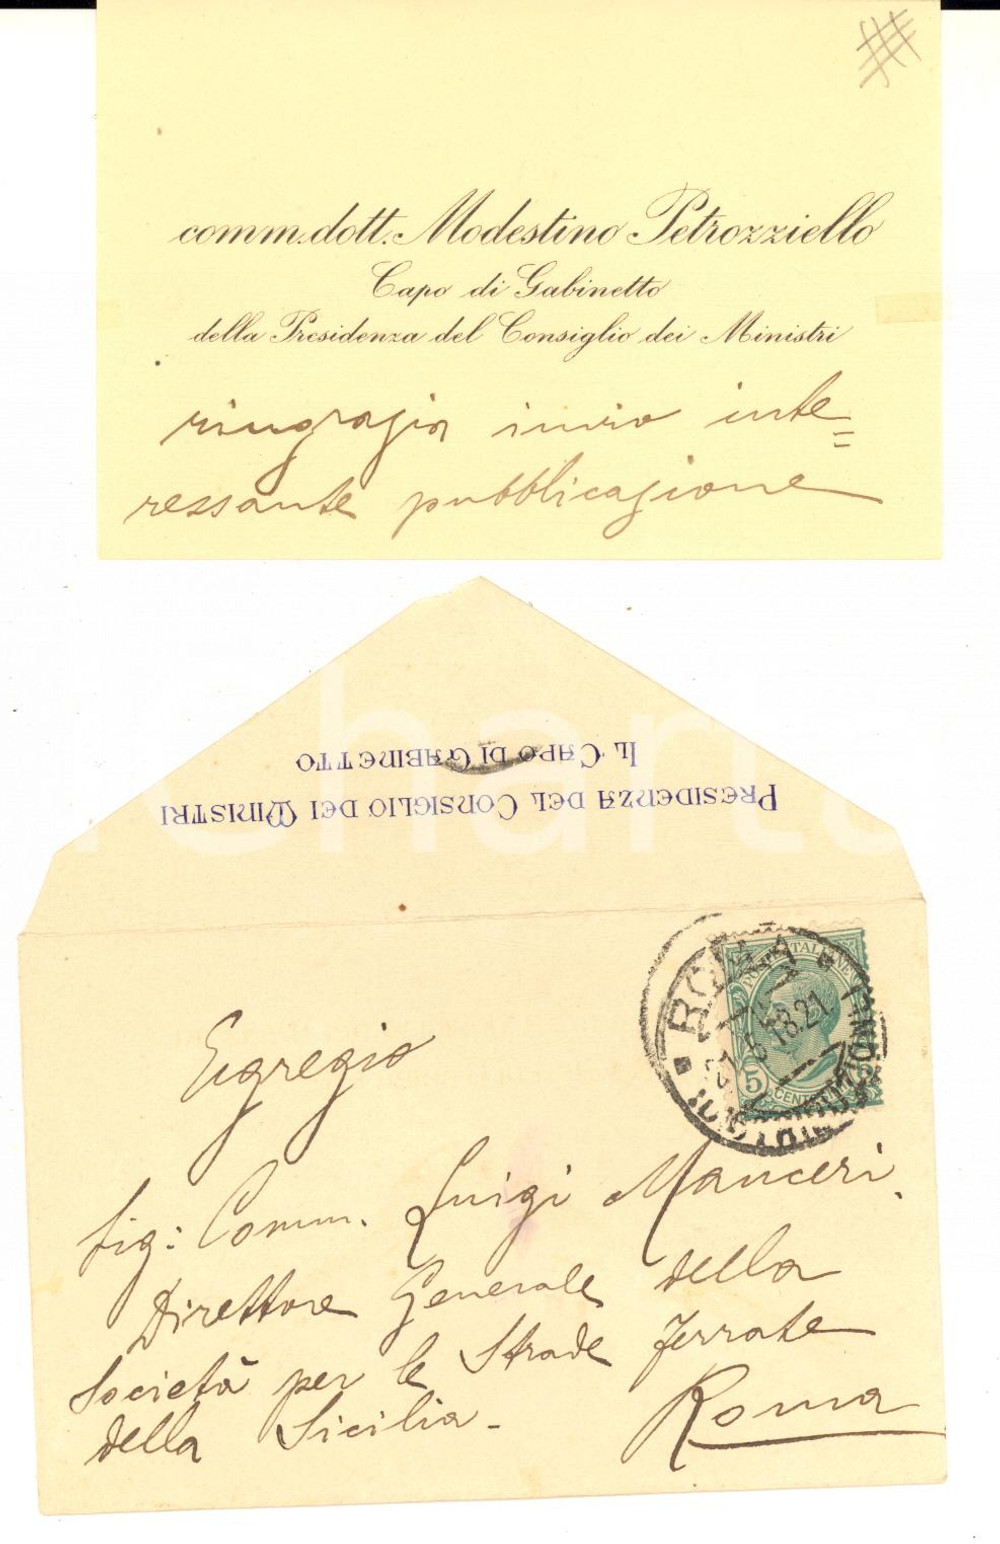 comm. dott. Modestino Petrozziello
Capo di Gabinetto
della Presidenza del Consiglio dei Ministri
ringrazia invio inte=
ressante pubblicazione
Presidenza del Consiglio dei Ministri
Il Capo di Gabinetto
ROMA
POSTE ITALIANE
18.21
5
CENT
Egregio
Sig: Comm. Luigi Manceri.
Direttore Generale della
Società per le Strade Ferrate
della Sicilia -
Roma